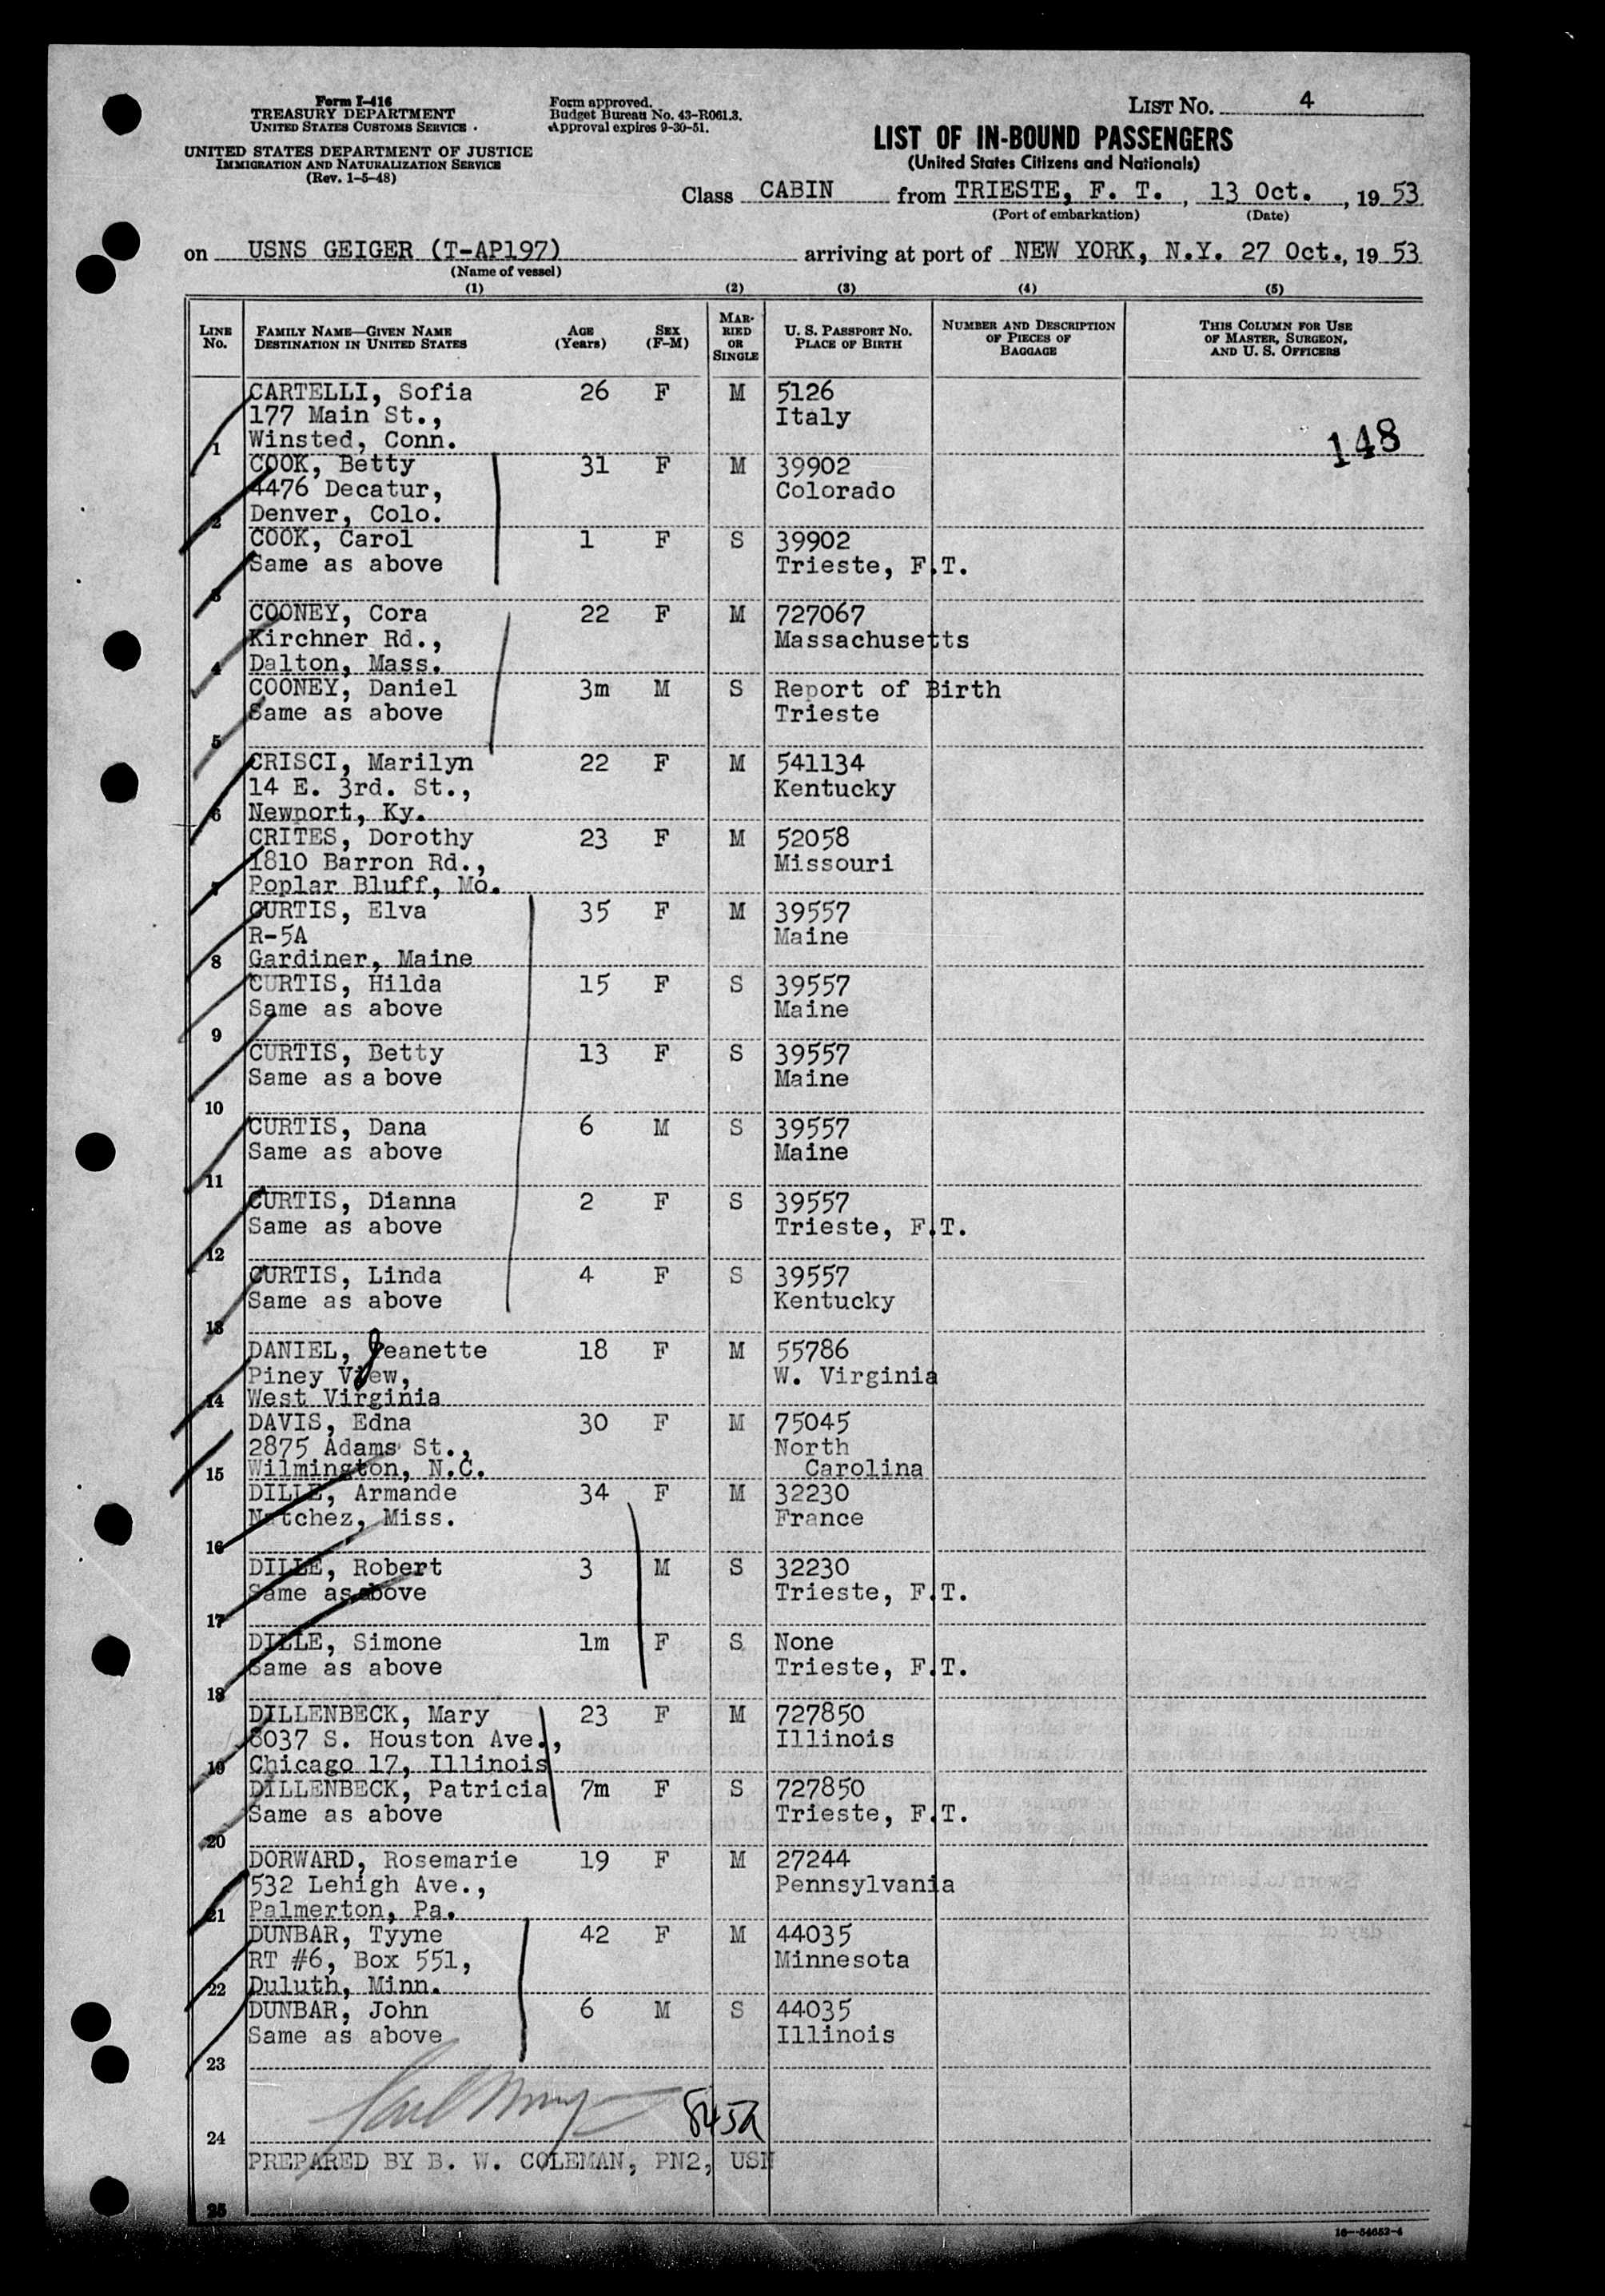 Form I-416
TREASURY DEPARTMENT
UNITED STATES CUSTOMS SERVICE
UNITED STATES DEPARTMENT OF JUSTICE
IMMIGRATION AND NATURALIZATION SERVICE
(Rev. 1-5-48)
Form approved.
Budget Bureau No. 43-R061.3.
Approval expires 9-30-51.
LIST No. 4
LIST OF IN-BOUND PASSENGERS
(United States Citizens and Nationals)
Class CABIN from TRIESTE, F. T., 13 Oct., 1953
(Port of embarkation) (Date)
on USNS GEIGER (T-AP197) arriving at port of NEW YORK, N.Y. 27 Oct., 1953
(Name of vessel)
(1) (2) (3) (4) (5)
LINE No. FAMILY NAME—GIVEN NAME DESTINATION IN UNITED STATES AGE (Years) SEX (F-M) MARRIED OR SINGLE U. S. PASSPORT No. PLACE OF BIRTH NUMBER AND DESCRIPTION OF PIECES OF BAGGAGE THIS COLUMN FOR USE OF MASTER, SURGEON, AND U. S. OFFICERS
CARTELLI, Sofia 26 F M 5126
177 Main St., Italy
1 Winsted, Conn. 148
COOK, Betty 31 F M 39902
4476 Decatur, Colorado
2 Denver, Colo.
COOK, Carol 1 F S 39902
Same as above Trieste, F.T.
3
COONEY, Cora 22 F M 727067
Kirchner Rd., Massachusetts
4 Dalton, Mass.
COONEY, Daniel 3m M S Report of Birth
Same as above Trieste
5
CRISCI, Marilyn 22 F M 541134
14 E. 3rd. St., Kentucky
6 Newport, Ky.
CRITES, Dorothy 23 F M 52058
1810 Barron Rd., Missouri
7 Poplar Bluff, Mo.
CURTIS, Elva 35 F M 39557
R-5A Maine
8 Gardiner, Maine
CURTIS, Hilda 15 F S 39557
Same as above Maine
9
CURTIS, Betty 13 F S 39557
Same as a bove Maine
10
CURTIS, Dana 6 M S 39557
Same as above Maine
11
CURTIS, Dianna 2 F S 39557
Same as above Trieste, F.T.
12
CURTIS, Linda 4 F S 39557
Same as above Kentucky
13
DANIEL, Jeanette 18 F M 55786
Piney View, W. Virginia
14 West Virginia
DAVIS, Edna 30 F M 75045
2875 Adams St., North
15 Wilmington, N.C. Carolina
DILLE, Armande 34 F M 32230
Natchez, Miss. France
16
DILLE, Robert 3 M S 32230
Same as above Trieste, F.T.
17
DILLE, Simone 1m F S None
Same as above Trieste, F.T.
18
DILLENBECK, Mary 23 F M 727850
8037 S. Houston Ave., Illinois
19 Chicago 17, Illinois
DILLENBECK, Patricia 7m F S 727850
Same as above Trieste, F.T.
20
DORWARD, Rosemarie 19 F M 27244
532 Lehigh Ave., Pennsylvania
21 Palmerton, Pa.
DUNBAR, Tyyne 42 F M 44035
RT #6, Box 551, Minnesota
22 Duluth, Minn.
DUNBAR, John 6 M S 44035
Same as above Illinois
23
24
PREPARED BY B. W. COLEMAN, PN2, USN
25
16—54652-4